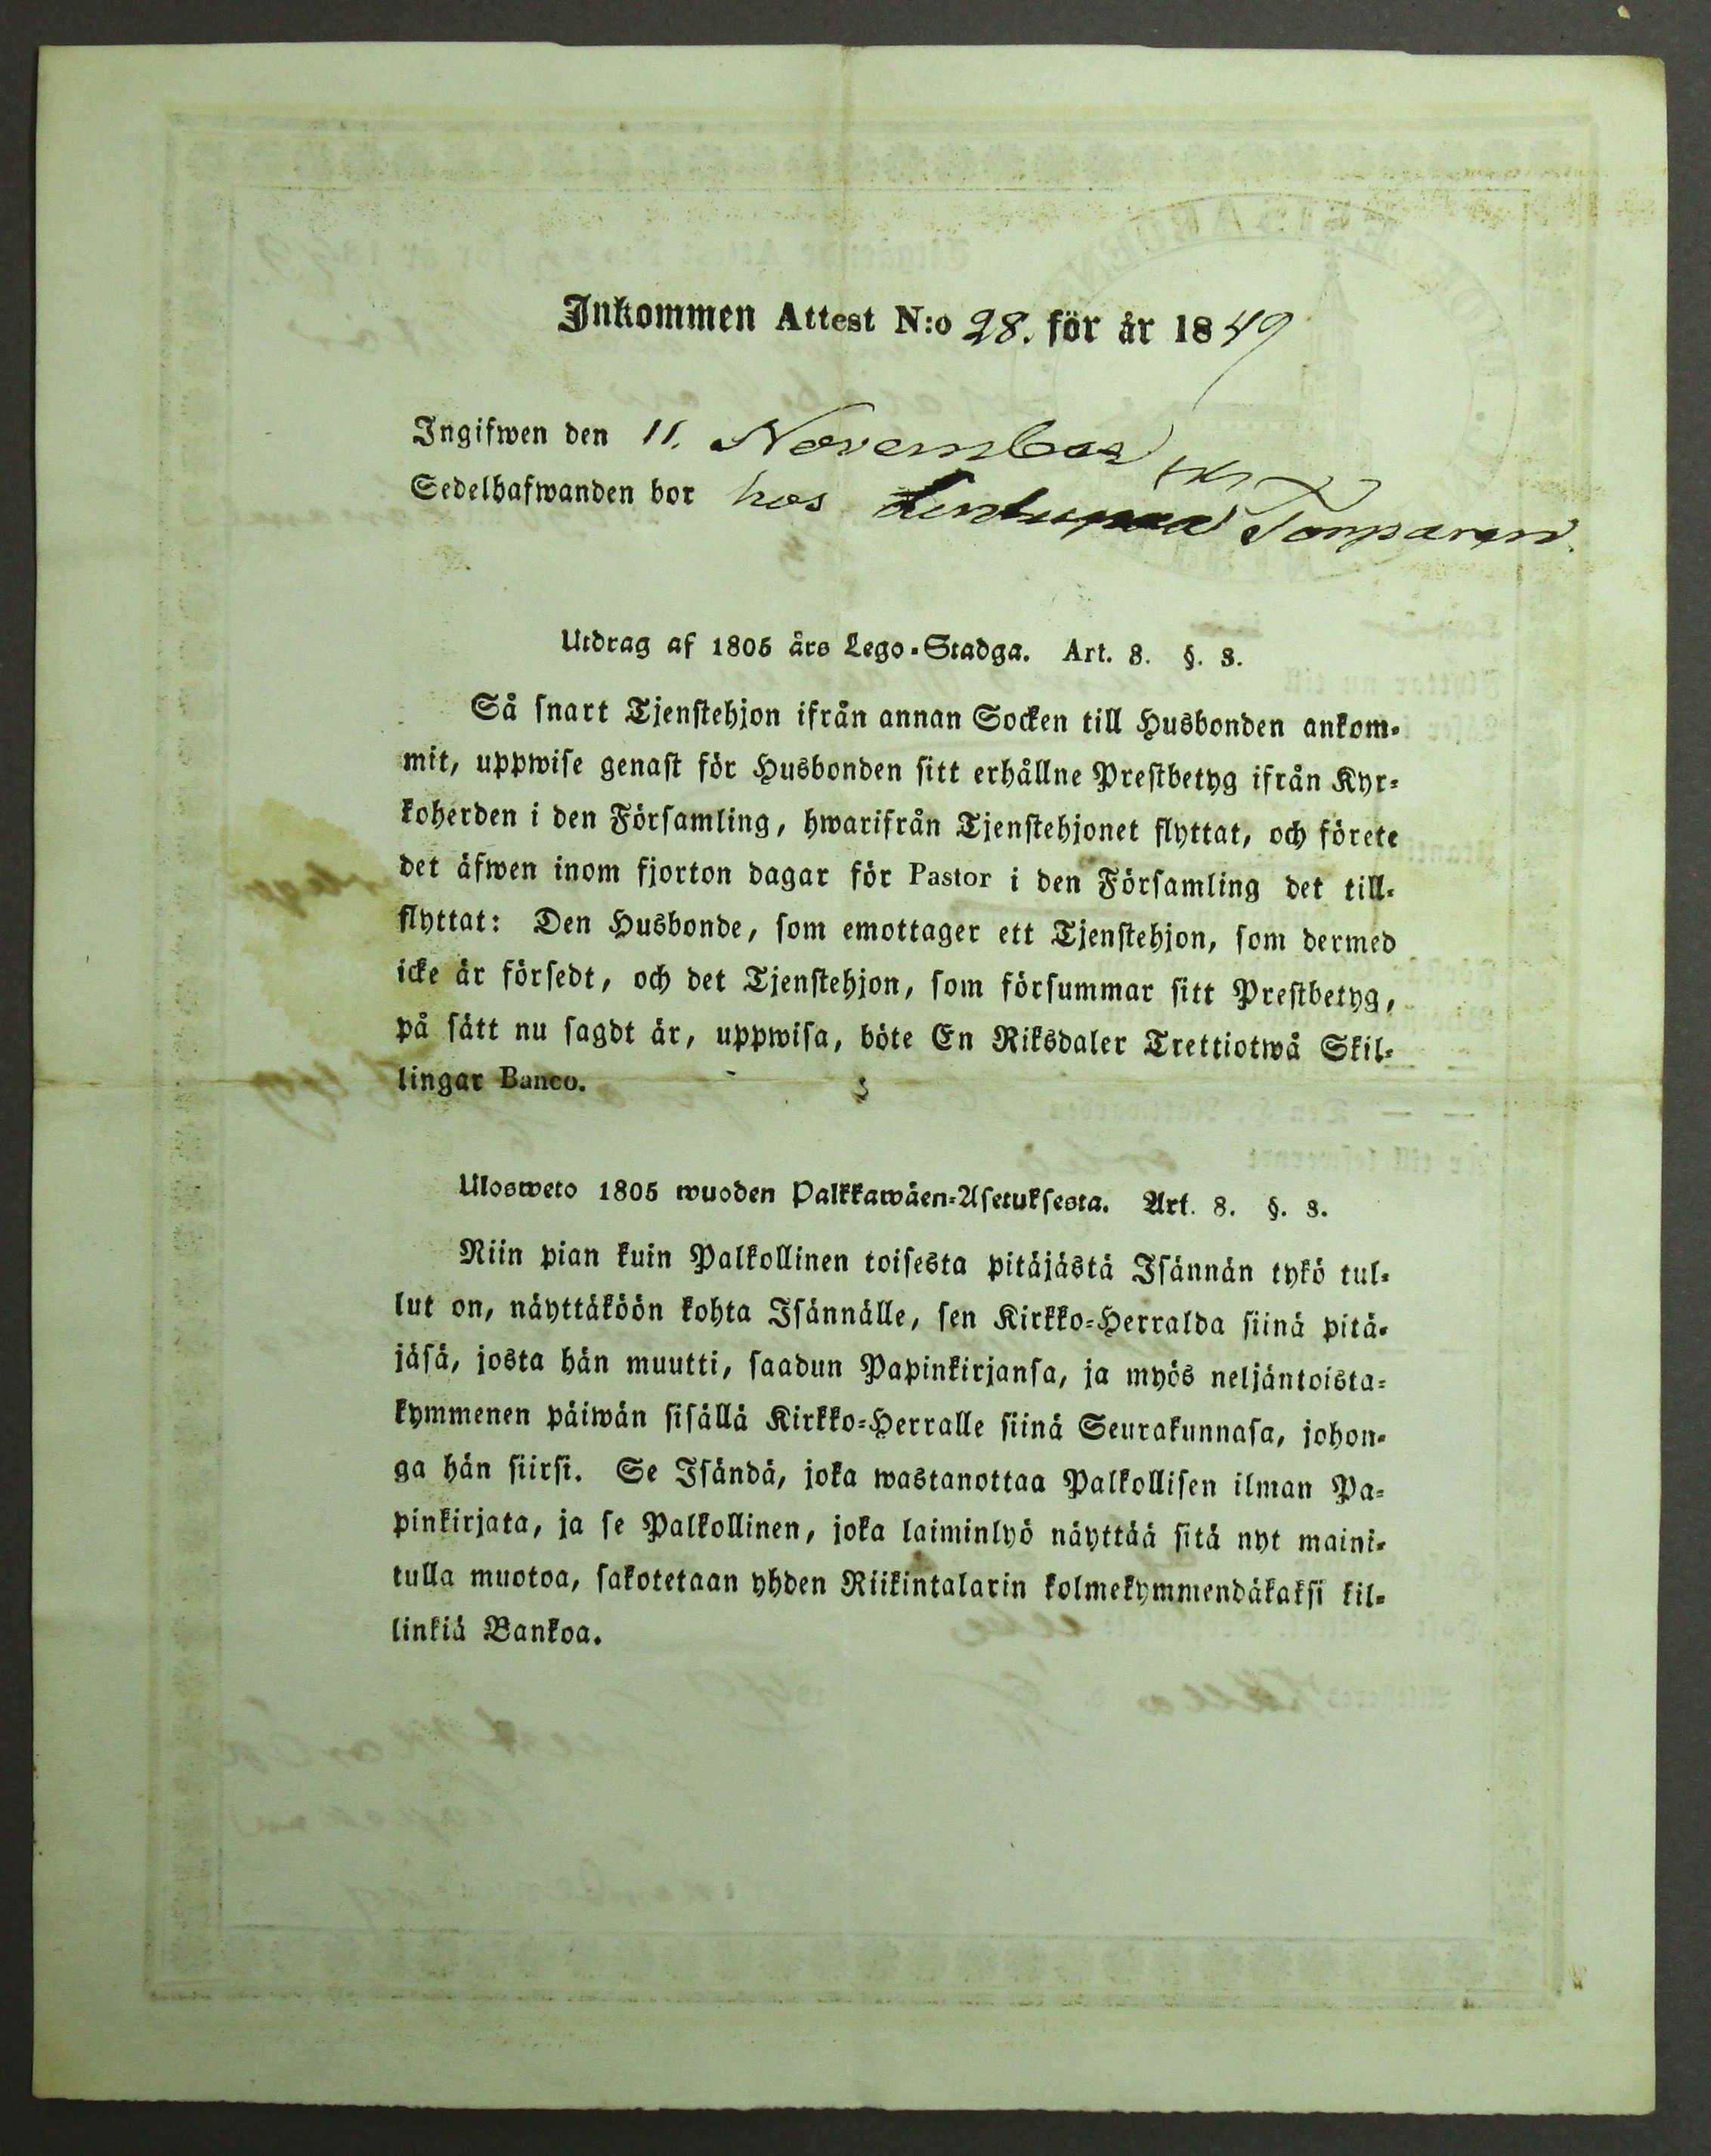 Inkommen Attest N:o 28. för år 1849
Ingifwen den 11. November
Sedelhafwanden bor hos Torparen
Utdrag af 1805 års Lego-Stadga. Art. 8. §. 3.
Så snart Tjenstehjon ifrån annan Socken till Husbonden ankom-
mit, uppwise genast för Husbonden sitt erhållne Prestbetyg ifrån Kyr-
koherden i den Församling, hwarifrån Tjenstehjonet flyttat, och förete
det äfwen inom fjorton dagar för Pastor i den Församling det till-
flyttat: Den Husbonde, som emottager ett Tjenstehjon, som dermed
icke är försedt, och det Tjenstehjon, som försummar sitt Prestbetyg,
på sätt nu sagdt är, uppwisa, böte En Riksdaler Trettiotwå Skil-
lingar Banco.
Ulosweto 1805 wuoden Palkkawäen-Asetuksesta. Art. 8. §. 3.
Niin pian kuin Palkollinen toisesta pitäjästä Isännän tykö tul-
lut on, näyttäköön kohta Isännälle, sen Kirkko-Herralda siinä pitä-
jäsä, josta hän muutti, saadun Papinkirjansa, ja myös neljäntoista-
kymmenen päiwän sisällä Kirkko-Herralle siinä Seurakunnasa, johon-
ga hän siirsi. Se Isändä, joka wastanottaa Palkollisen ilman Pa-
pinkirjata, ja se Palkollinen, joka laiminlyö näyttää sitä nyt maini-
tulla muotoa, sakotetaan yhden Riikintalarin kolmekymmendäkaksi kil-
linkiä Bankoa.